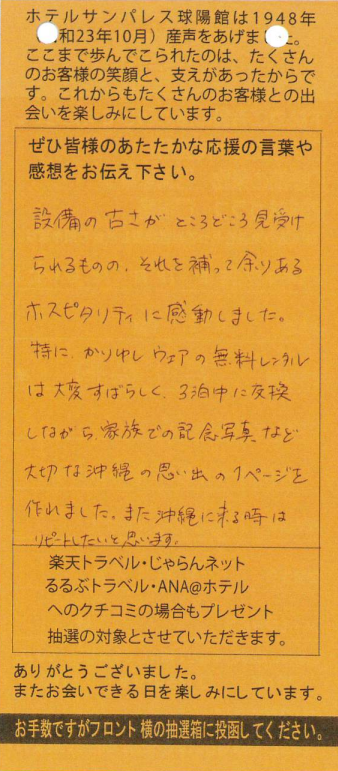 ホテルサンパレス球陽館は1948年
和23年10月）産声をあげました。
ここまで歩んでこられたのは、たくさん
のお客様の笑顔と、支えがあったからで
す。これからもたくさんのお客様との出
会いを楽しみにしています。
ぜひ皆様のあたたかな応援の言葉や
感想をお伝え下さい。
設備の古さが ところどころ見受け
られるものの、それを補って余りある
ホスピタリティに感動しました。
特に、かりゆしウェアの無料レンタル
は大変すばらしく、3泊中に交換
しながら、家族での記念写真など
大切な沖縄の思い出の1ページを
作れました。また沖縄に来る時は
リピートしたいと思います。
楽天トラベル・じゃらんネット
るるぶトラベル・ANA@ホテル
へのクチコミの場合もプレゼント
抽選の対象とさせていただきます。
ありがとうございました。
またお会いできる日を楽しみにしています。
お手数ですがフロント横の抽選箱に投函してください。